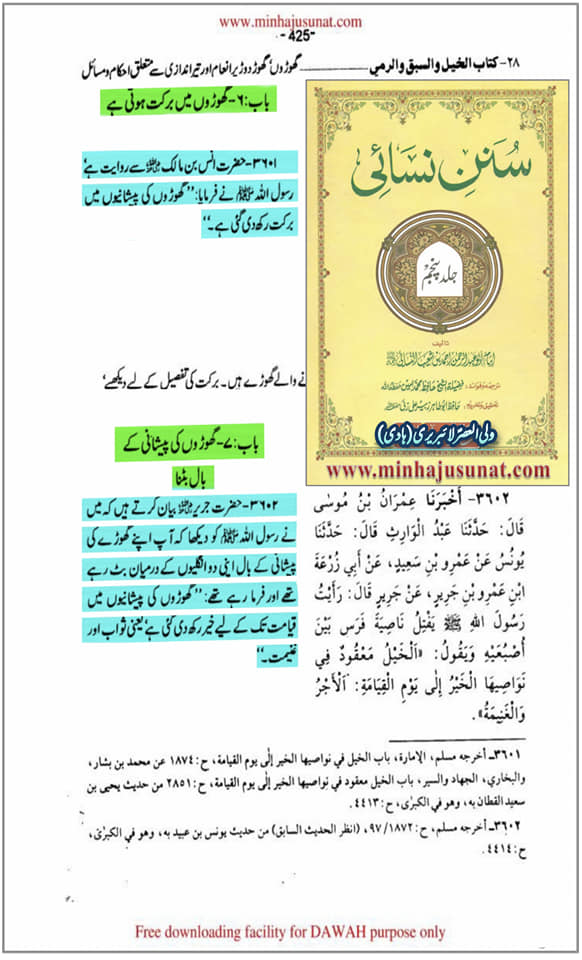 www.minhajusunat.com
-425-
٢٨- كتاب الخيل والسبق والرمي
گھوڑوں، گھوڑ دوڑ پر انعام اور تیر اندازی سے متعلق احکام و مسائل
باب: ٦- گھوڑوں میں برکت ہوتی ہے
٣٦٠١- حضرت انس بن مالک ﷜ سے روایت ہے،
رسول اللہ ﷺ نے فرمایا: ”گھوڑوں کی پیشانیوں میں
برکت رکھ دی گئی ہے۔“
سُننِ نسائی
جلد پنجم
تالیف
ولی العصر لائبریری (ہادی)
www.minhajusunat.com
نے والے گھوڑے ہیں۔ برکت کی تفصیل کے لیے دیکھیے،
باب: ٧- گھوڑوں کی پیشانی کے
بال بٹنا
٣٦٠٢- حضرت جریر ﷜ بیان کرتے ہیں کہ میں
نے رسول اللہ ﷺ کو دیکھا کہ آپ اپنے گھوڑے کی
پیشانی کے بال اپنی دو انگلیوں کے درمیان بٹ رہے
تھے اور فرما رہے تھے: ”گھوڑوں کی پیشانیوں میں
قیامت تک کے لیے خیر رکھ دی گئی ہے، یعنی ثواب اور
غنیمت۔“
٣٦٠٢- أَخْبَرَنَا عِمْرَانُ بْنُ مُوسَى
قَالَ: حَدَّثَنَا عَبْدُ الْوَارِثِ قَالَ: حَدَّثَنَا
يُونُسُ عَنْ عَمْرِو بْنِ سَعِيدٍ، عَنْ أَبِي زُرْعَةَ
ابْنِ عَمْرِو بْنِ جَرِيرٍ، عَنْ جَرِيرٍ قَالَ: رَأَيْتُ
رَسُولَ اللهِ ﷺ يَفْتِلُ نَاصِيَةَ فَرَسٍ بَيْنَ
أُصْبُعَيْهِ وَيَقُولُ: «اَلْخَيْلُ مَعْقُودٌ فِي
نَوَاصِيهَا الْخَيْرُ إِلَى يَوْمِ الْقِيَامَةِ: اَلْأَجْرُ
وَالْغَنِيمَةُ».
٣٦٠١ـ أخرجه مسلم، الإمارة، باب الخيل في نواصيها الخير إلى يوم القيامة، ح:١٨٧٤ عن محمد بن بشار،
والبخاري، الجهاد والسير، باب الخيل معقود في نواصيها الخير إلى يوم القيامة، ح:٢٨٥١ من حديث يحيى بن
سعيد القطان به، وهو في الكبرى، ح:٤٤١٣.
٣٦٠٢ـ أخرجه مسلم، ح:٩٧/١٨٧٢، (انظر الحديث السابق) من حديث يونس بن عبيد به، وهو في الكبرى،
ح:٤٤١٤.
Free downloading facility for DAWAH purpose only